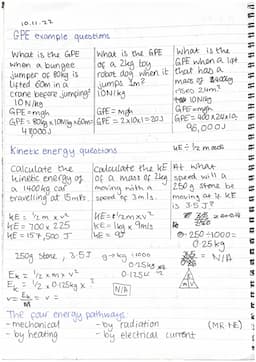 10.11.22
GPE example questions
What is the GPE
when a bungee
jumper of 80kg is
lifted 60m in a
crane before jumping?
10N/kg
GPE = mgh
GPE = 80kg x 10N/kg x 60m =
48000J
What is the GPE
of a 2kg toy
robot dog when it
jumps 1m?
10N/kg
GPE = mgh
GPE = 2x10x1 = 20J
What is the
GPE when a lot
that has a
mass of 400kg
rises 24m?
10N/kg
GPE = mgh
GPE = 400x24x10
96,000J
Kinetic energy questions
Calculate the
kinetic energy of
a 1400kg car
travelling at 15m/s.
KE = ½ m x v²
KE = 700 x 225
KE = 157,500J
Calculate the KE
of a mass of 2kg
moving with a
speed of 3m/s.
KE = ½ m x v²
KE = 1kg x 9m/s
KE = 9J
At what
speed will a
250g stone be
moving at if KE
is 3.5J?
250÷1000=
0.25kg
= N/A
250g stone, 3.5J
g→kg ÷1000
0.25kg
0.125
Ek = ½ x m x v²
Ek = ½ x 0.125kg x ²
N/A
The four energy pathways:
- mechanical
- by radiation
(MR HE)
- by heating
- by electrical current